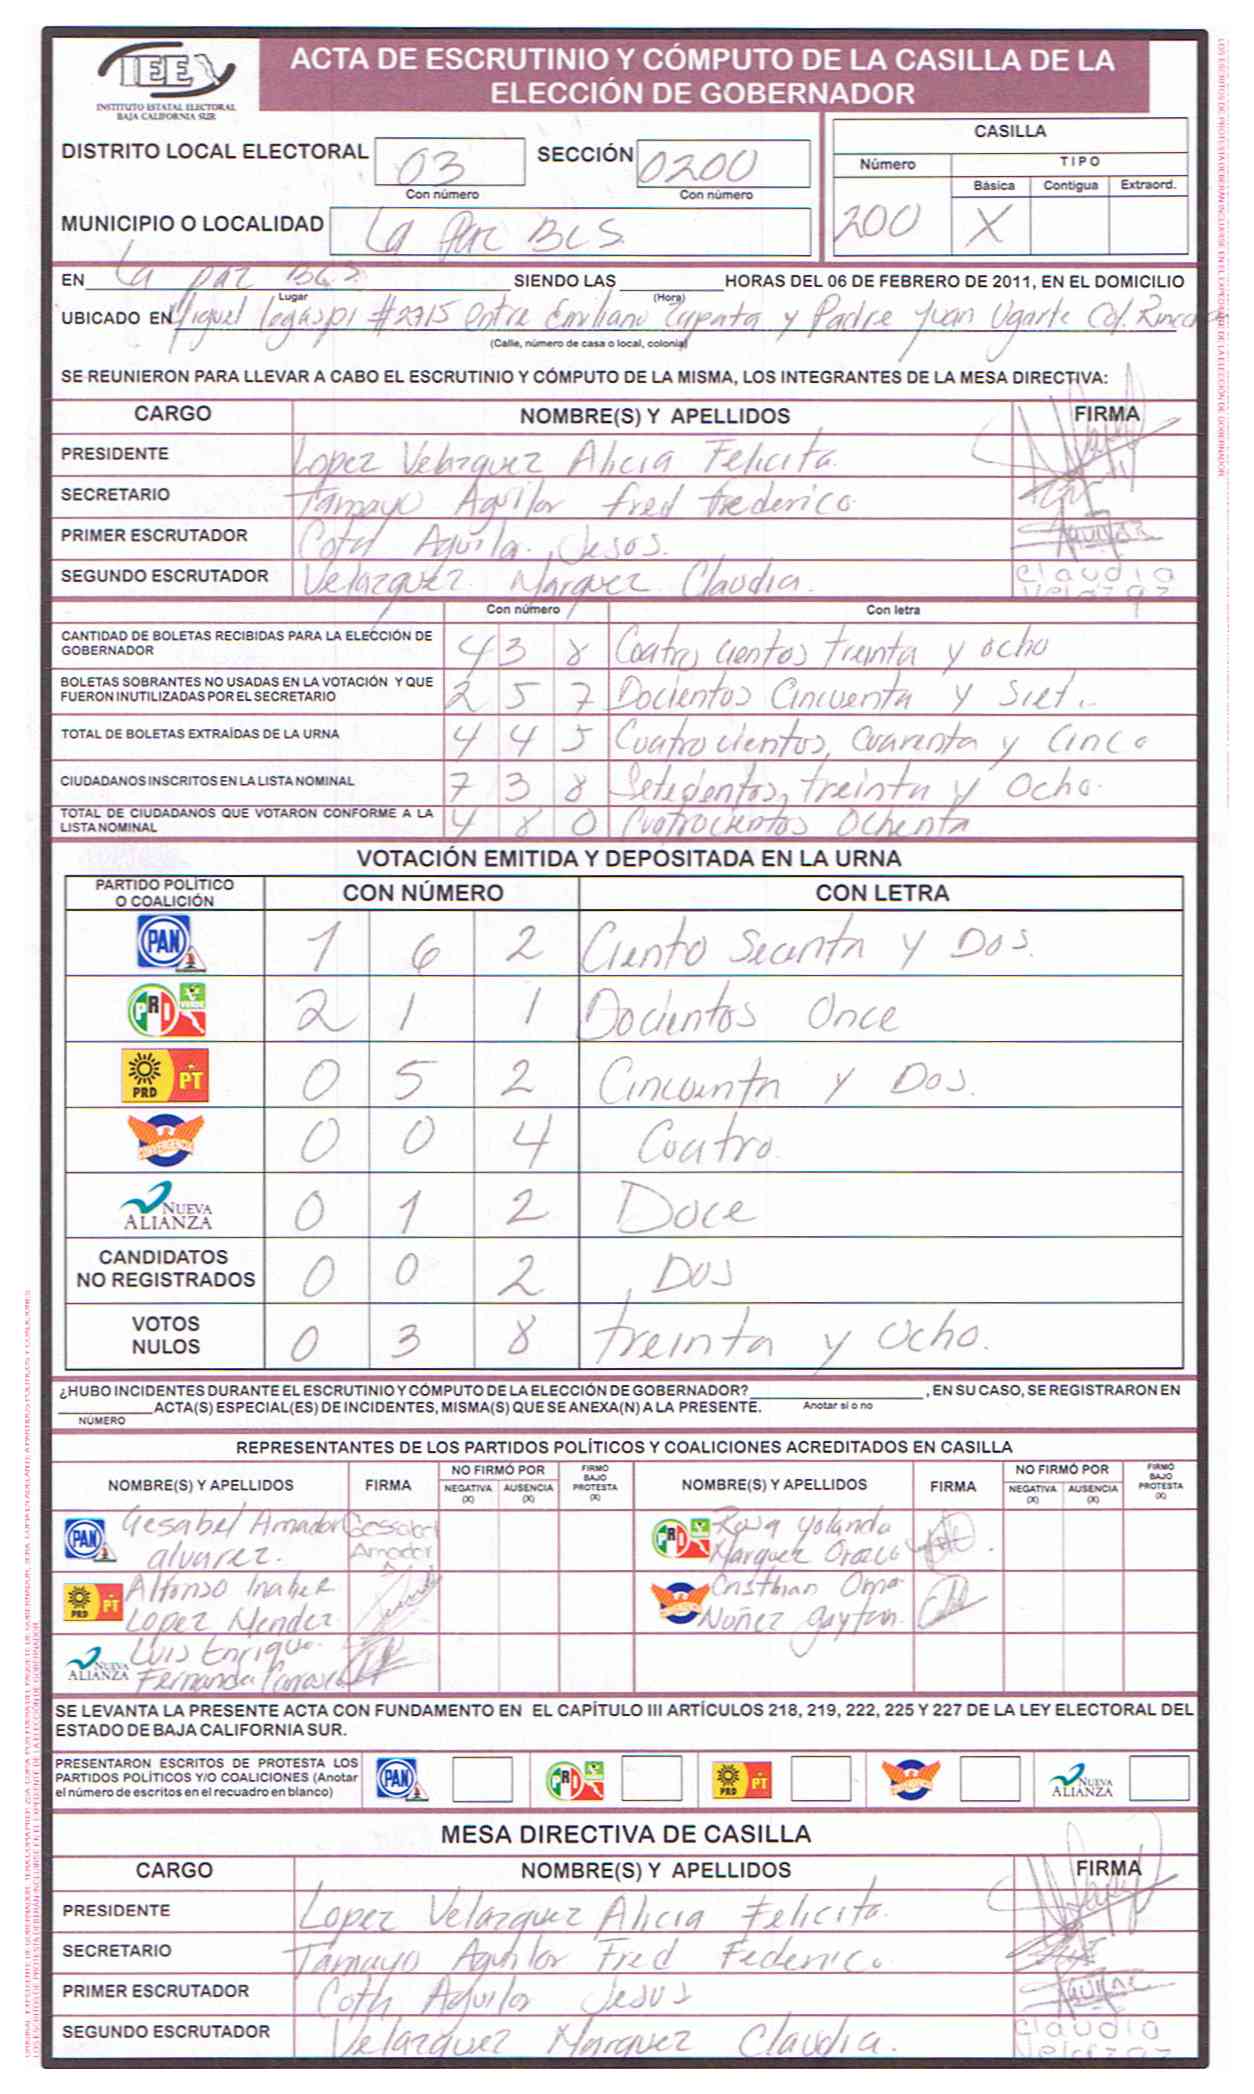 IEE
INSTITUTO ESTATAL ELECTORAL
BAJA CALIFORNIA SUR
ACTA DE ESCRUTINIO Y CÓMPUTO DE LA CASILLA DE LA
ELECCIÓN DE GOBERNADOR
DISTRITO LOCAL ELECTORAL 03 SECCIÓN 0200
Con número Con número
MUNICIPIO O LOCALIDAD La Paz BCS.
CASILLA
Número TIPO
Básica Contigua Extraord.
200 X
EN La paz BCS. SIENDO LAS HORAS DEL 06 DE FEBRERO DE 2011, EN EL DOMICILIO
Lugar (Hora)
UBICADO EN Miguel Legaspi #2715 entre Emiliano Zapata y Padre Juan Ugarte Col.
(Calle, número de casa o local, colonia)
SE REUNIERON PARA LLEVAR A CABO EL ESCRUTINIO Y CÓMPUTO DE LA MISMA, LOS INTEGRANTES DE LA MESA DIRECTIVA:
CARGO NOMBRE(S) Y APELLIDOS FIRMA
PRESIDENTE Lopez Velazquez Alicia Felicita.
SECRETARIO Tamayo Aguilar Fred Frederico
PRIMER ESCRUTADOR Cota Aguilar Jesos. Aguilar
SEGUNDO ESCRUTADOR Velazquez Marquez Claudia. Claudia
Velazqz
Con número Con letra
CANTIDAD DE BOLETAS RECIBIDAS PARA LA ELECCIÓN DE
GOBERNADOR 4 3 8 Cuatro cientos treinta y ocho
BOLETAS SOBRANTES NO USADAS EN LA VOTACIÓN Y QUE
FUERON INUTILIZADAS POR EL SECRETARIO 2 5 7 Docientos Cincuenta y Siet.
TOTAL DE BOLETAS EXTRAÍDAS DE LA URNA 4 4 5 Cuatro cientos, Cuarenta y Cinco
CIUDADANOS INSCRITOS EN LA LISTA NOMINAL 7 3 8 Setecientos, treinta y Ocho.
TOTAL DE CIUDADANOS QUE VOTARON CONFORME A LA
LISTA NOMINAL 4 8 0 Cuatrocientos Ochenta
VOTACIÓN EMITIDA Y DEPOSITADA EN LA URNA
PARTIDO POLÍTICO
O COALICIÓN CON NÚMERO CON LETRA
PAN 1 6 2 Ciento Secenta y Dos.
PRI VERDE 2 1 1 Docientos Once
PRD PT 0 5 2 Cincuenta y Dos.
CONVERGENCIA 0 0 4 Cuatro.
NUEVA
ALIANZA 0 1 2 Doce
CANDIDATOS
NO REGISTRADOS 0 0 2 Dos
VOTOS
NULOS 0 3 8 treinta y Ocho.
¿HUBO INCIDENTES DURANTE EL ESCRUTINIO Y CÓMPUTO DE LA ELECCIÓN DE GOBERNADOR? , EN SU CASO, SE REGISTRARON EN
ACTA(S) ESPECIAL(ES) DE INCIDENTES, MISMA(S) QUE SE ANEXA(N) A LA PRESENTE. Anotar si o no
NÚMERO
REPRESENTANTES DE LOS PARTIDOS POLÍTICOS Y COALICIONES ACREDITADOS EN CASILLA
NOMBRE(S) Y APELLIDOS FIRMA NO FIRMÓ POR NEGATIVA (X) AUSENCIA (X) FIRMÓ BAJO PROTESTA (X) NOMBRE(S) Y APELLIDOS FIRMA NO FIRMÓ POR NEGATIVA (X) AUSENCIA (X) FIRMÓ BAJO PROTESTA (X)
PAN Gesabel Amador
alvarez. Amador
PRI Rosa Yolanda
Marquez Orozco
PRD PT Alfonso
Lopez Mendez
Cristhian Omar
Nuñez gaytan.
NUEVA ALIANZA Luis Enrique
Fernanda
SE LEVANTA LA PRESENTE ACTA CON FUNDAMENTO EN EL CAPÍTULO III ARTÍCULOS 218, 219, 222, 225 Y 227 DE LA LEY ELECTORAL DEL
ESTADO DE BAJA CALIFORNIA SUR.
PRESENTARON ESCRITOS DE PROTESTA LOS
PARTIDOS POLÍTICOS Y/O COALICIONES (Anotar
el número de escritos en el recuadro en blanco)
PAN PRI PRD PT NUEVA ALIANZA
MESA DIRECTIVA DE CASILLA
CARGO NOMBRE(S) Y APELLIDOS FIRMA
PRESIDENTE Lopez Velazquez Alicia Felicita.
SECRETARIO Tamayo Aguilar Fred Federico.
PRIMER ESCRUTADOR Cota Aguilar Jesus Aguilar
SEGUNDO ESCRUTADOR Velazquez Marquez Claudia. Claudia